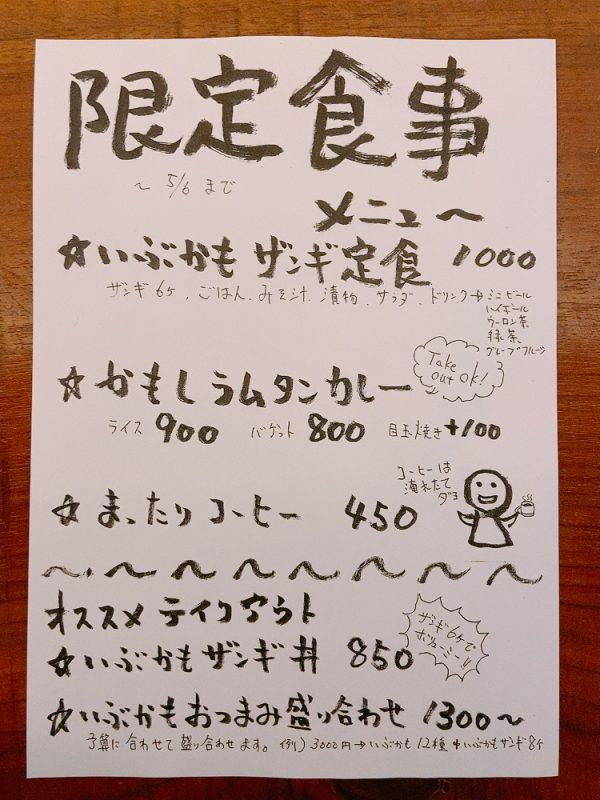 限定食事
〜 5/6 まで
メニュ〜
☆いぶかも ザンギ定食 1000
ザンギ 6ケ、ごはん、みそ汁、漬物、サラダ、ドリンク→ミニビール
ハイボール
ウーロン茶、
緑茶、
グレープフルーツ
Take
out OK!
☆かもしラムタンカレー
ライス 900 バゲット 800 目玉焼き +100
コーヒーは
淹れたて
ダヨ
☆まったりコーヒー 450
〜〜〜〜〜〜〜〜
オススメ テイクアウト
ザンギ 6ケで
ボリューミー!!
☆いぶかもザンギ丼 850
☆いぶかもおつまみ盛り合わせ 1300〜
予算に合わせて盛り合わせます。例) 3000円→いぶかも12種+いぶかもザンギ8ケ